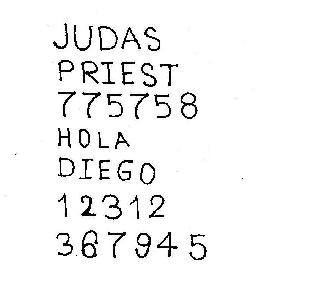 JUDAS
PRIEST
775758
HOLA
DIEGO
12312
367945